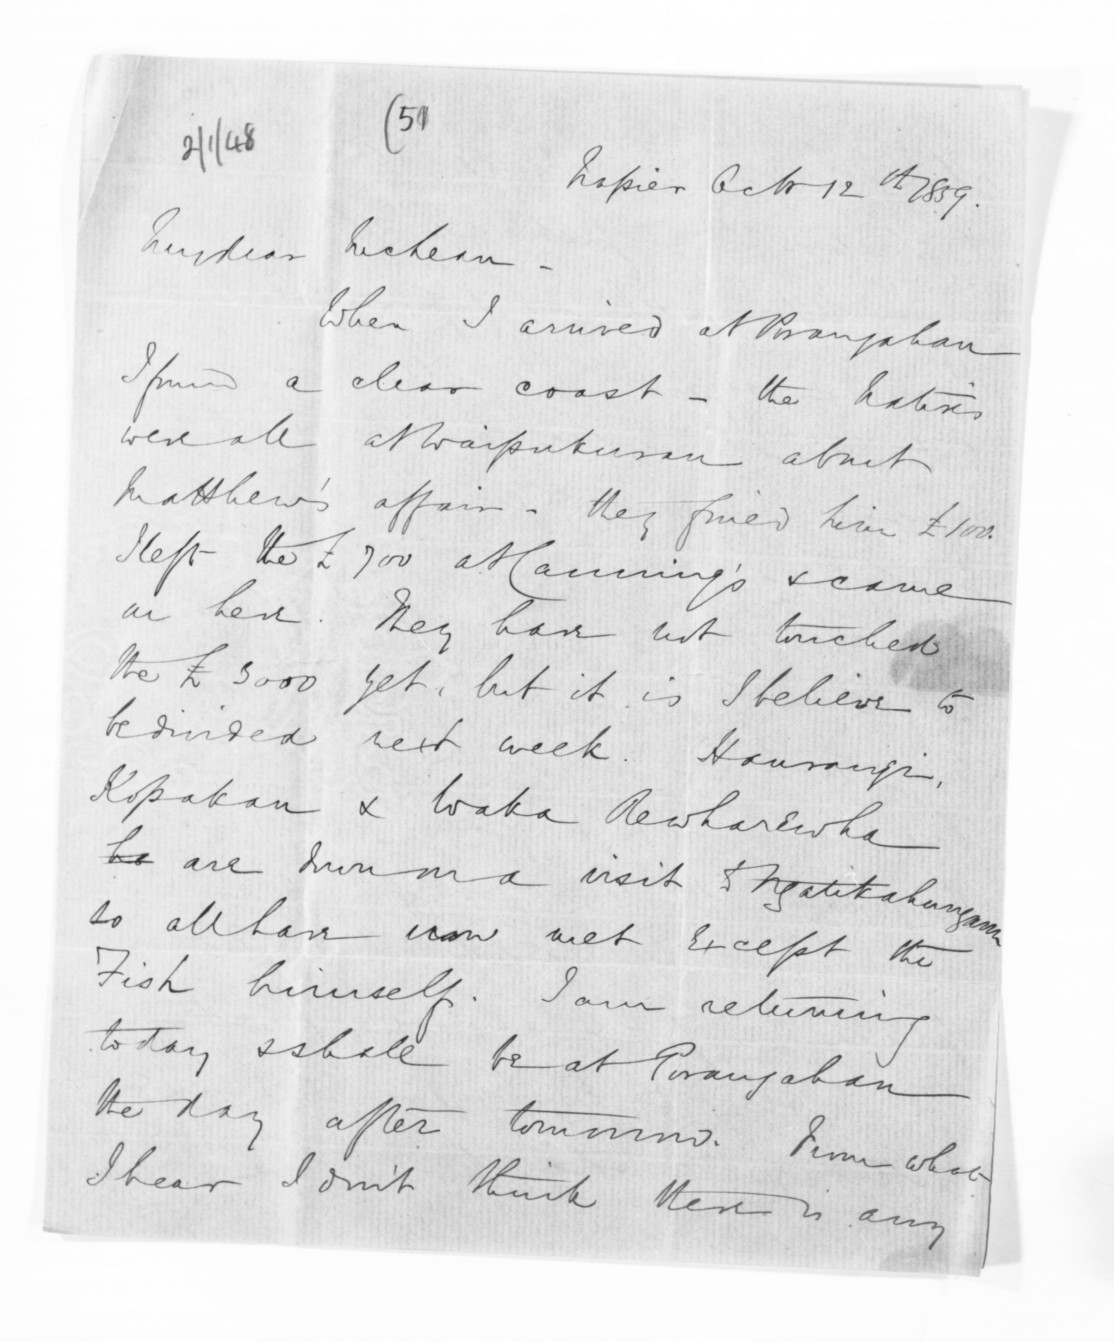 2/1/48
(51
Napier Octr 12th 1859.
My dear McLean -
When I arrived at Porangahau
I found a clear coast - the Natives
were all at Waipukurau about
Matthew's affair - they fined him £100.
I left the £700 at Canning's & came
on here. They have not touched
the £3000 yet, but it is I believe to
be divided next week. Hauraugi,
Kopakau & Waka Rewharewha
ha are down on a visit to Ngatikahungunu
so all have now met except the
Fish himself. I am returning
today & shall be at Porangahau
the day after tomorrow. From what
I hear I don't think there is any